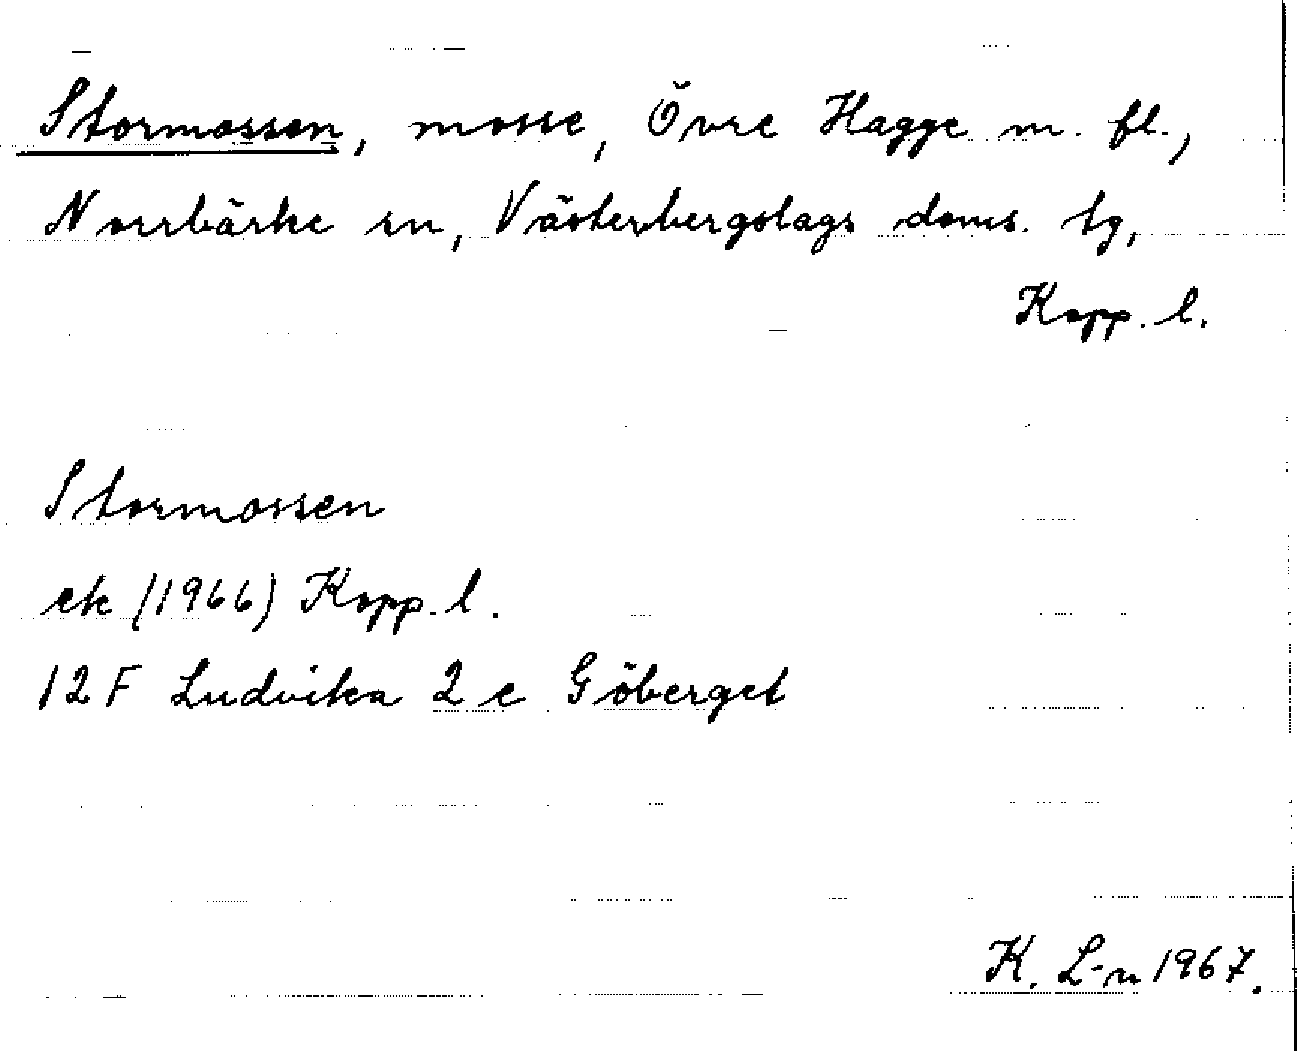 Stormossen, mosse, Övre Hagge m. fl.,
Norrbärke sn, Västerbergslags doms. tg,
Kopp. l.
Stormossen
ek (1966) Kopp. l.
12 F Ludvika 2 e Göberget
K. L-n 1967.